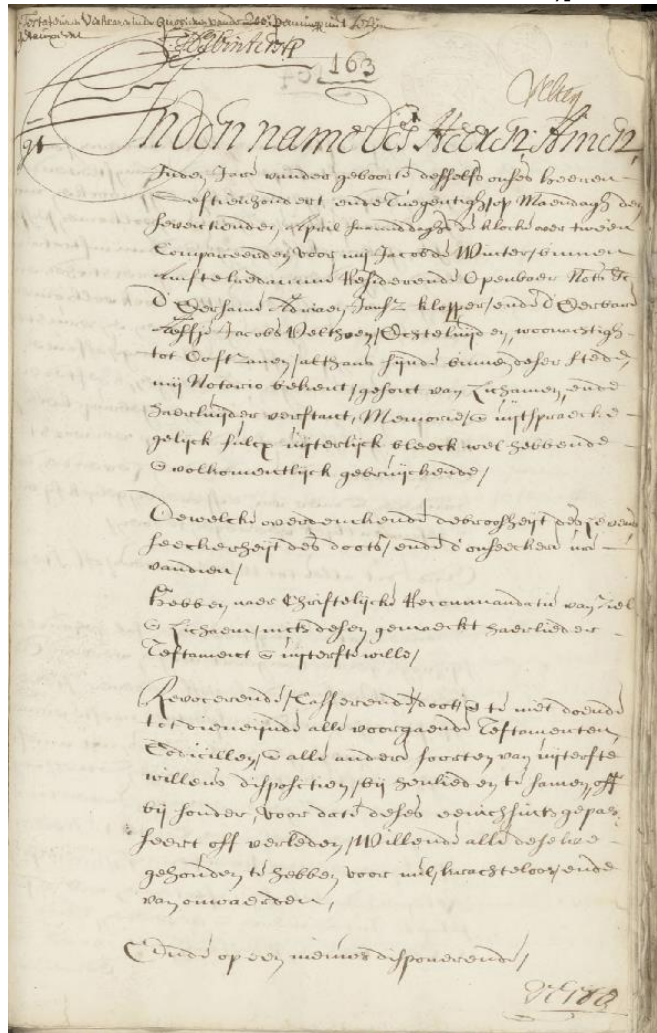 Testateuren Verklaren inde quotisatie vande 200.e penning niet
163
In den name des Heeren Amen
Inden Jare vander geboorte desselfs onses Heeren
Sestienhondert ende tnegentigh, op Maendagh den
seventienden April snaermiddaghs de klocke over tween
Compareerden voor mij Jacob de Winter, binnen
Amsteledamme Residerende Openbaer Nots. &c
d' Eersame Adriaen Jansz. Klopper, ende d' Eerbare
Aefje Jacobs Velthoen, Echteluijden, woonachtigh
tot Oostzanen, althans sijnde binnen deser stede,
mij Notario bekent, gesont van Lichamen, ende
haerluijder verstant, Memorie, & uijtspraecke
gelijck sulcx uijterlijck bleeck wel hebbende
& volkomentlijck gebruijckende,
Dewelcke overdenckende de broosheijt des levens
seeckerheijt des doots, ende d'onseeckere ure
vandien,
Hebben naer Christelijcke Recommandatie van Ziel
& Lichaem, mits desen gemaeckt haerlieder
Testament & uijterste wille,
Revocerende, Casserende, doot, & te niet doende
tot dien eijnde alle voorgaende Testamenten,
Codicillen, & alle andere soorten van uijterste
willens dispositien, bij henlieden te samen, off
bijsonder, voor date deses eenichsints gepas-
seert off verleden, Willende alle deselve
gehouden te hebben voor nul, krachteloos, ende
van onwaerden,
Ende op een nieuw disponerende,